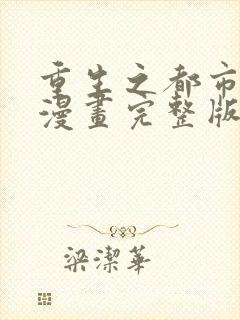 重生之都市
漫畫完整版
梁潔華